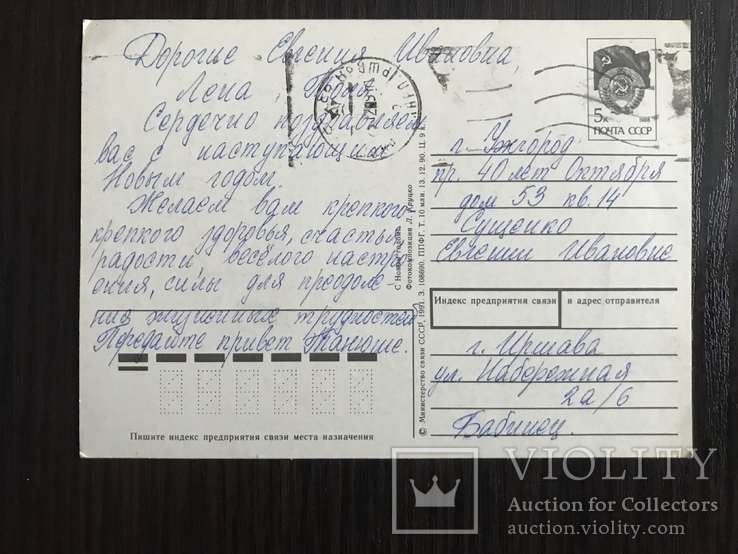 Дорогие Евгения Ивановна,
Лена,
Сердечно поздравляем
вас с наступающим
Новым годом.
Желаем вам крепкого-
крепкого здоровья, счастья
радости весёлого настро
ения, силы для преодоле-
ния жизненных трудностей
Передайте привет Танюше.
5к 1988
ПОЧТА СССР
г. Ужгород
пр. 40 лет Октября
дом 53 кв. 14
Сущенко
Евгении Ивановне
Индекс предприятия связи и адрес отправителя
г. Иршава
ул. Набережная
2а/6
Бабинец.
Пишите индекс предприятия связи места назначения
© Министерство связи СССР, 1991. З. 108690. ППФГ. Т. 10 млн. 13. 12. 90. Ц. 9 к.
С Новым годом!
Фотокомпозиция Л. Круцко
VIOLITY
Auction for Collectors
auction.violity.com